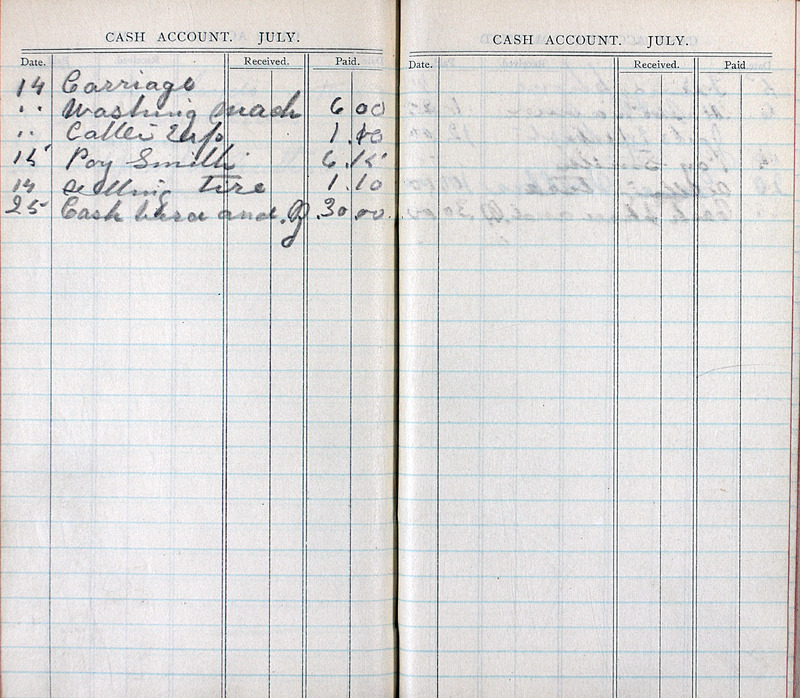 CASH ACCOUNT. JULY.
Date. Received. Paid.
14 Carriage
" Washing Mach 6 00
" 1.40
15 Pay Smith 6.15
14 Setting tire 1.10
25 Cash and 30 00
CASH ACCOUNT. JULY.
Date. Received. Paid